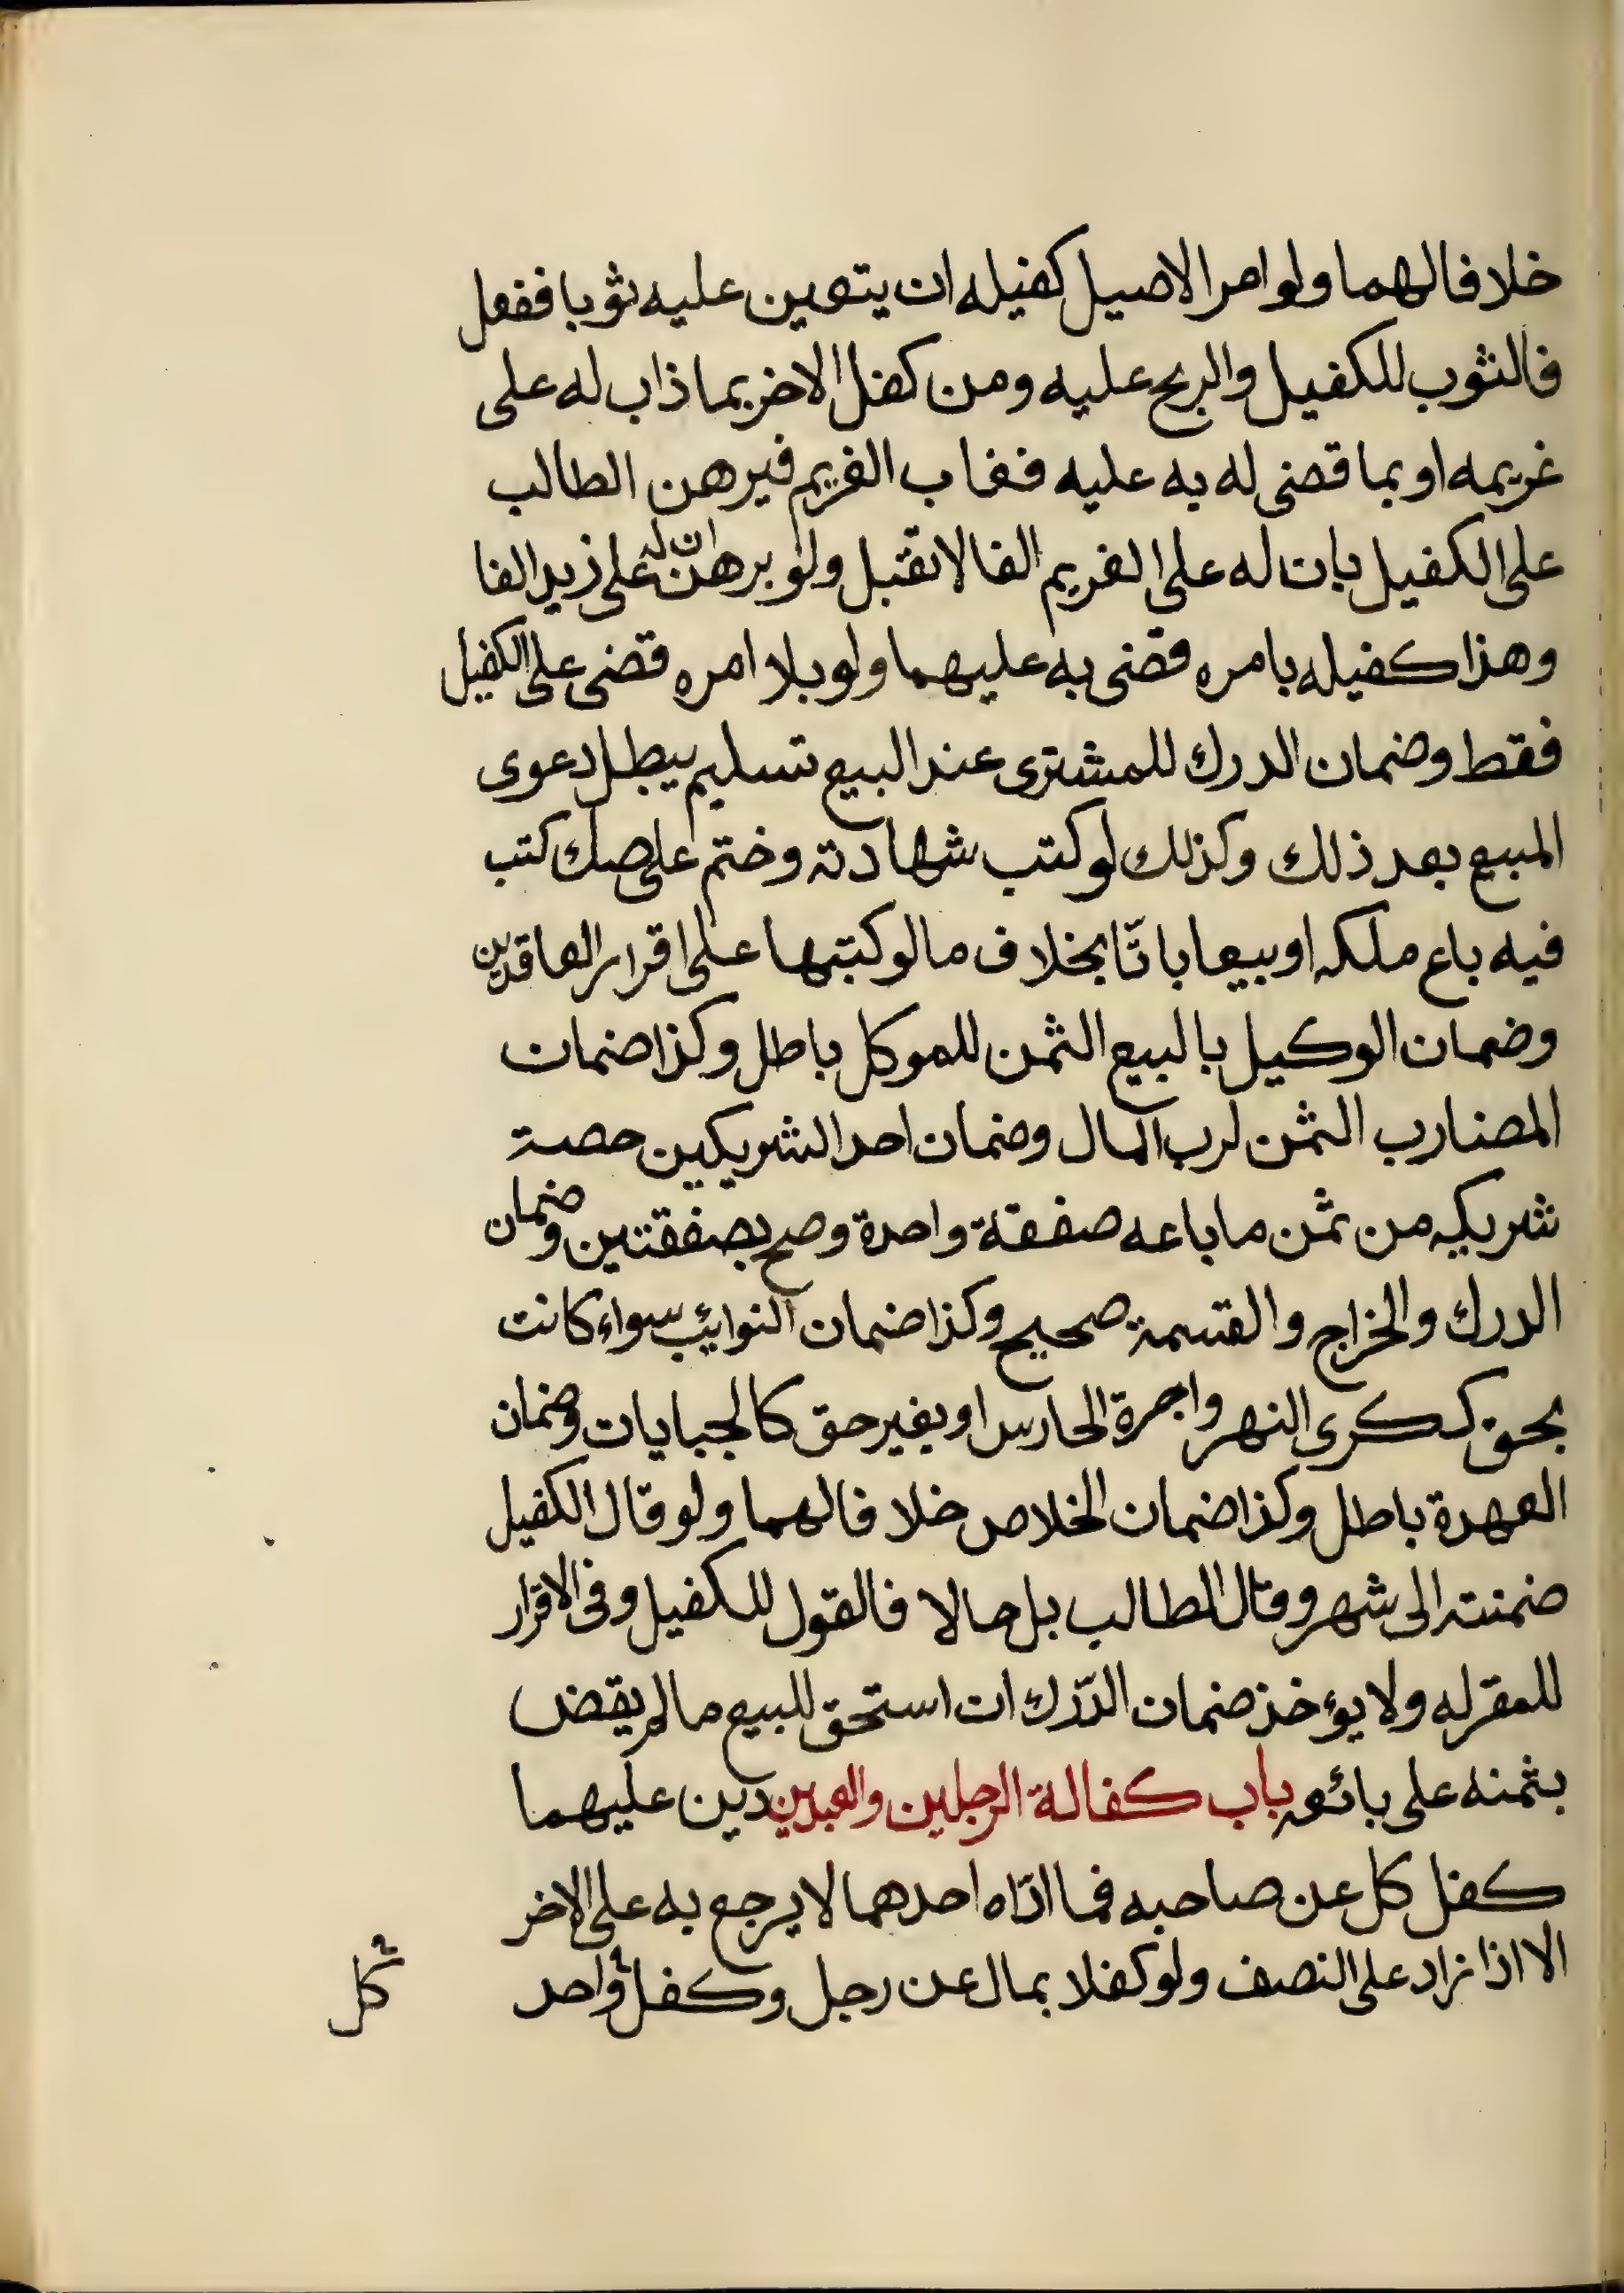 خلافا لهما ولو امر الاصيل كفيله ان يتعين عليه ثوبا ففعل
فالثوب للكفيل والربح عليه ومن كفل الاخر بما ذاب له على
غريمه او بما قضى له به عليه فغاب الغريم فبرهن الطالب
على الكفيل بان له على الغريم الفا لا تقبل ولو برهن ان له على زيد الفا
وهذا كفيله بامره قضى به عليهما ولو بلا امره قضى على الكفيل
فقط وضمان الدرك للمشترى عند البيع تسليم يبطل دعوى
المبيع بعد ذلك وكذلك لو كتب شهادته وختم على صك كتب
فيه باع ملكه او بيعا باتّا بخلاف ما لو كتبها على اقرار العاقدين
وضمان الوكيل بالبيع الثمن للموكل باطل وكذا ضمان
المضارب الثمن لرب المال وضمان احد الشريكين حصة
شريكه من ثمن ما باعه صفقة واحدة وصح بصفقتين وضمان
الدرك والخراج والقسمة صحيح وكذا ضمان النوائب سواء كانت
بحق ككرى النهر واجرة الحارس او بغير حق كالجبايات وضمان
العهدة باطل وكذا ضمان الخلاص خلافا لهما ولو قال الكفيل
ضمنته الى شهر وقال الطالب بل حالا فالقول للكفيل وفى الاقرار
للمقر له ولا يؤخذ ضمان الدّرك ان استحق للبيع ما لم يقض
بثمنه على بائعه باب كفالة الرجلين والعبدين دين عليهما
كفل كل عن صاحبه فما ادّاه احدهما لا يرجع به على الاخر
الا اذا زاد على النصف ولو كفلا بمال عن رجل وكفل واحد
كل